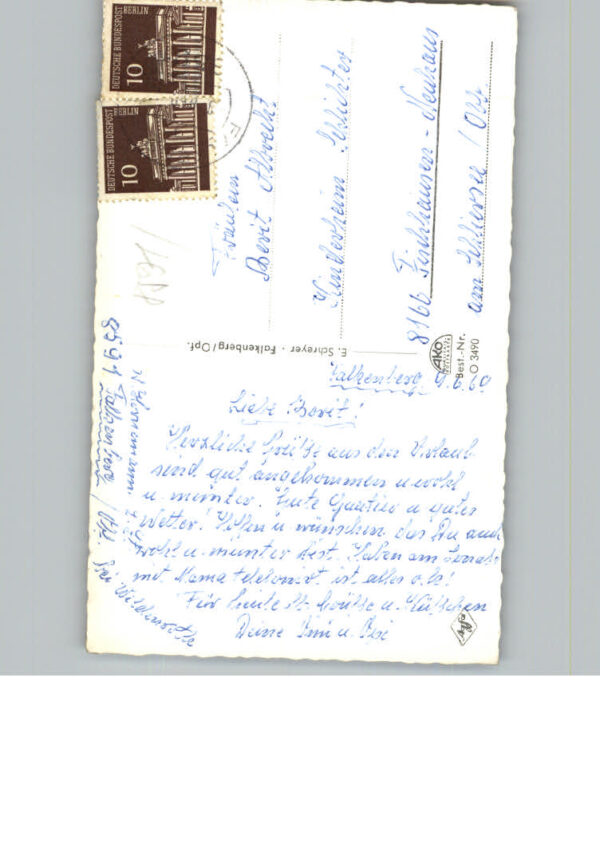 DEUTSCHE BUNDESPOST
BERLIN
10
DEUTSCHE BUNDESPOST
BERLIN
10
Fräulein
Berit Albrecht
Kinderheim Schlichter
8166 Fischhausen - Neuhaus
am Schliersee / Obb.
E. Schreyer · Falkenberg/Opf.
AKO
Best.-Nr.
O 3490
Falkenberg, 9.6.69
Liebe Berit!
Herzliche Grüße aus dem Urlaub
sind gut angekommen u. wohl
u. munter. Gute Quartier u. gutes
Wetter! Hoffen u. wünschen das Du auch
wohl u. munter bist. Haben am
mit Mama telefoniert ist alles o.k!
Für heute Grüße u. Küßchen
Deine u.
8591 Falkenberg / Opf.
Agfa